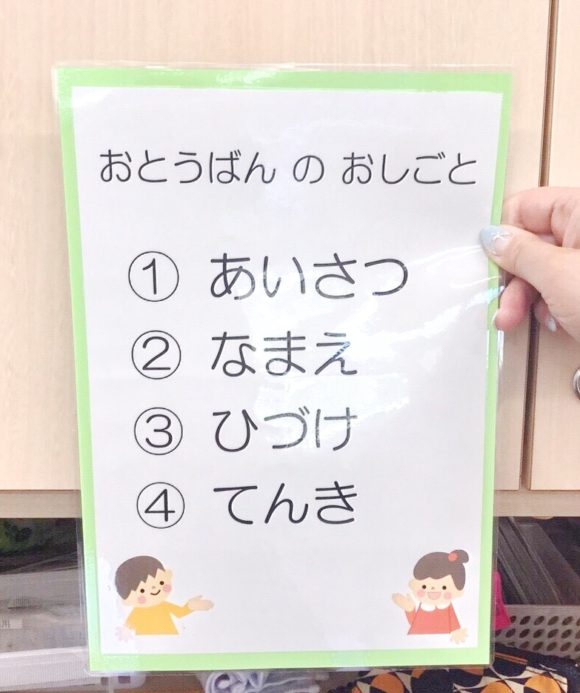 おとうばん の おしごと
① あいさつ
② なまえ
③ ひづけ
④ てんき